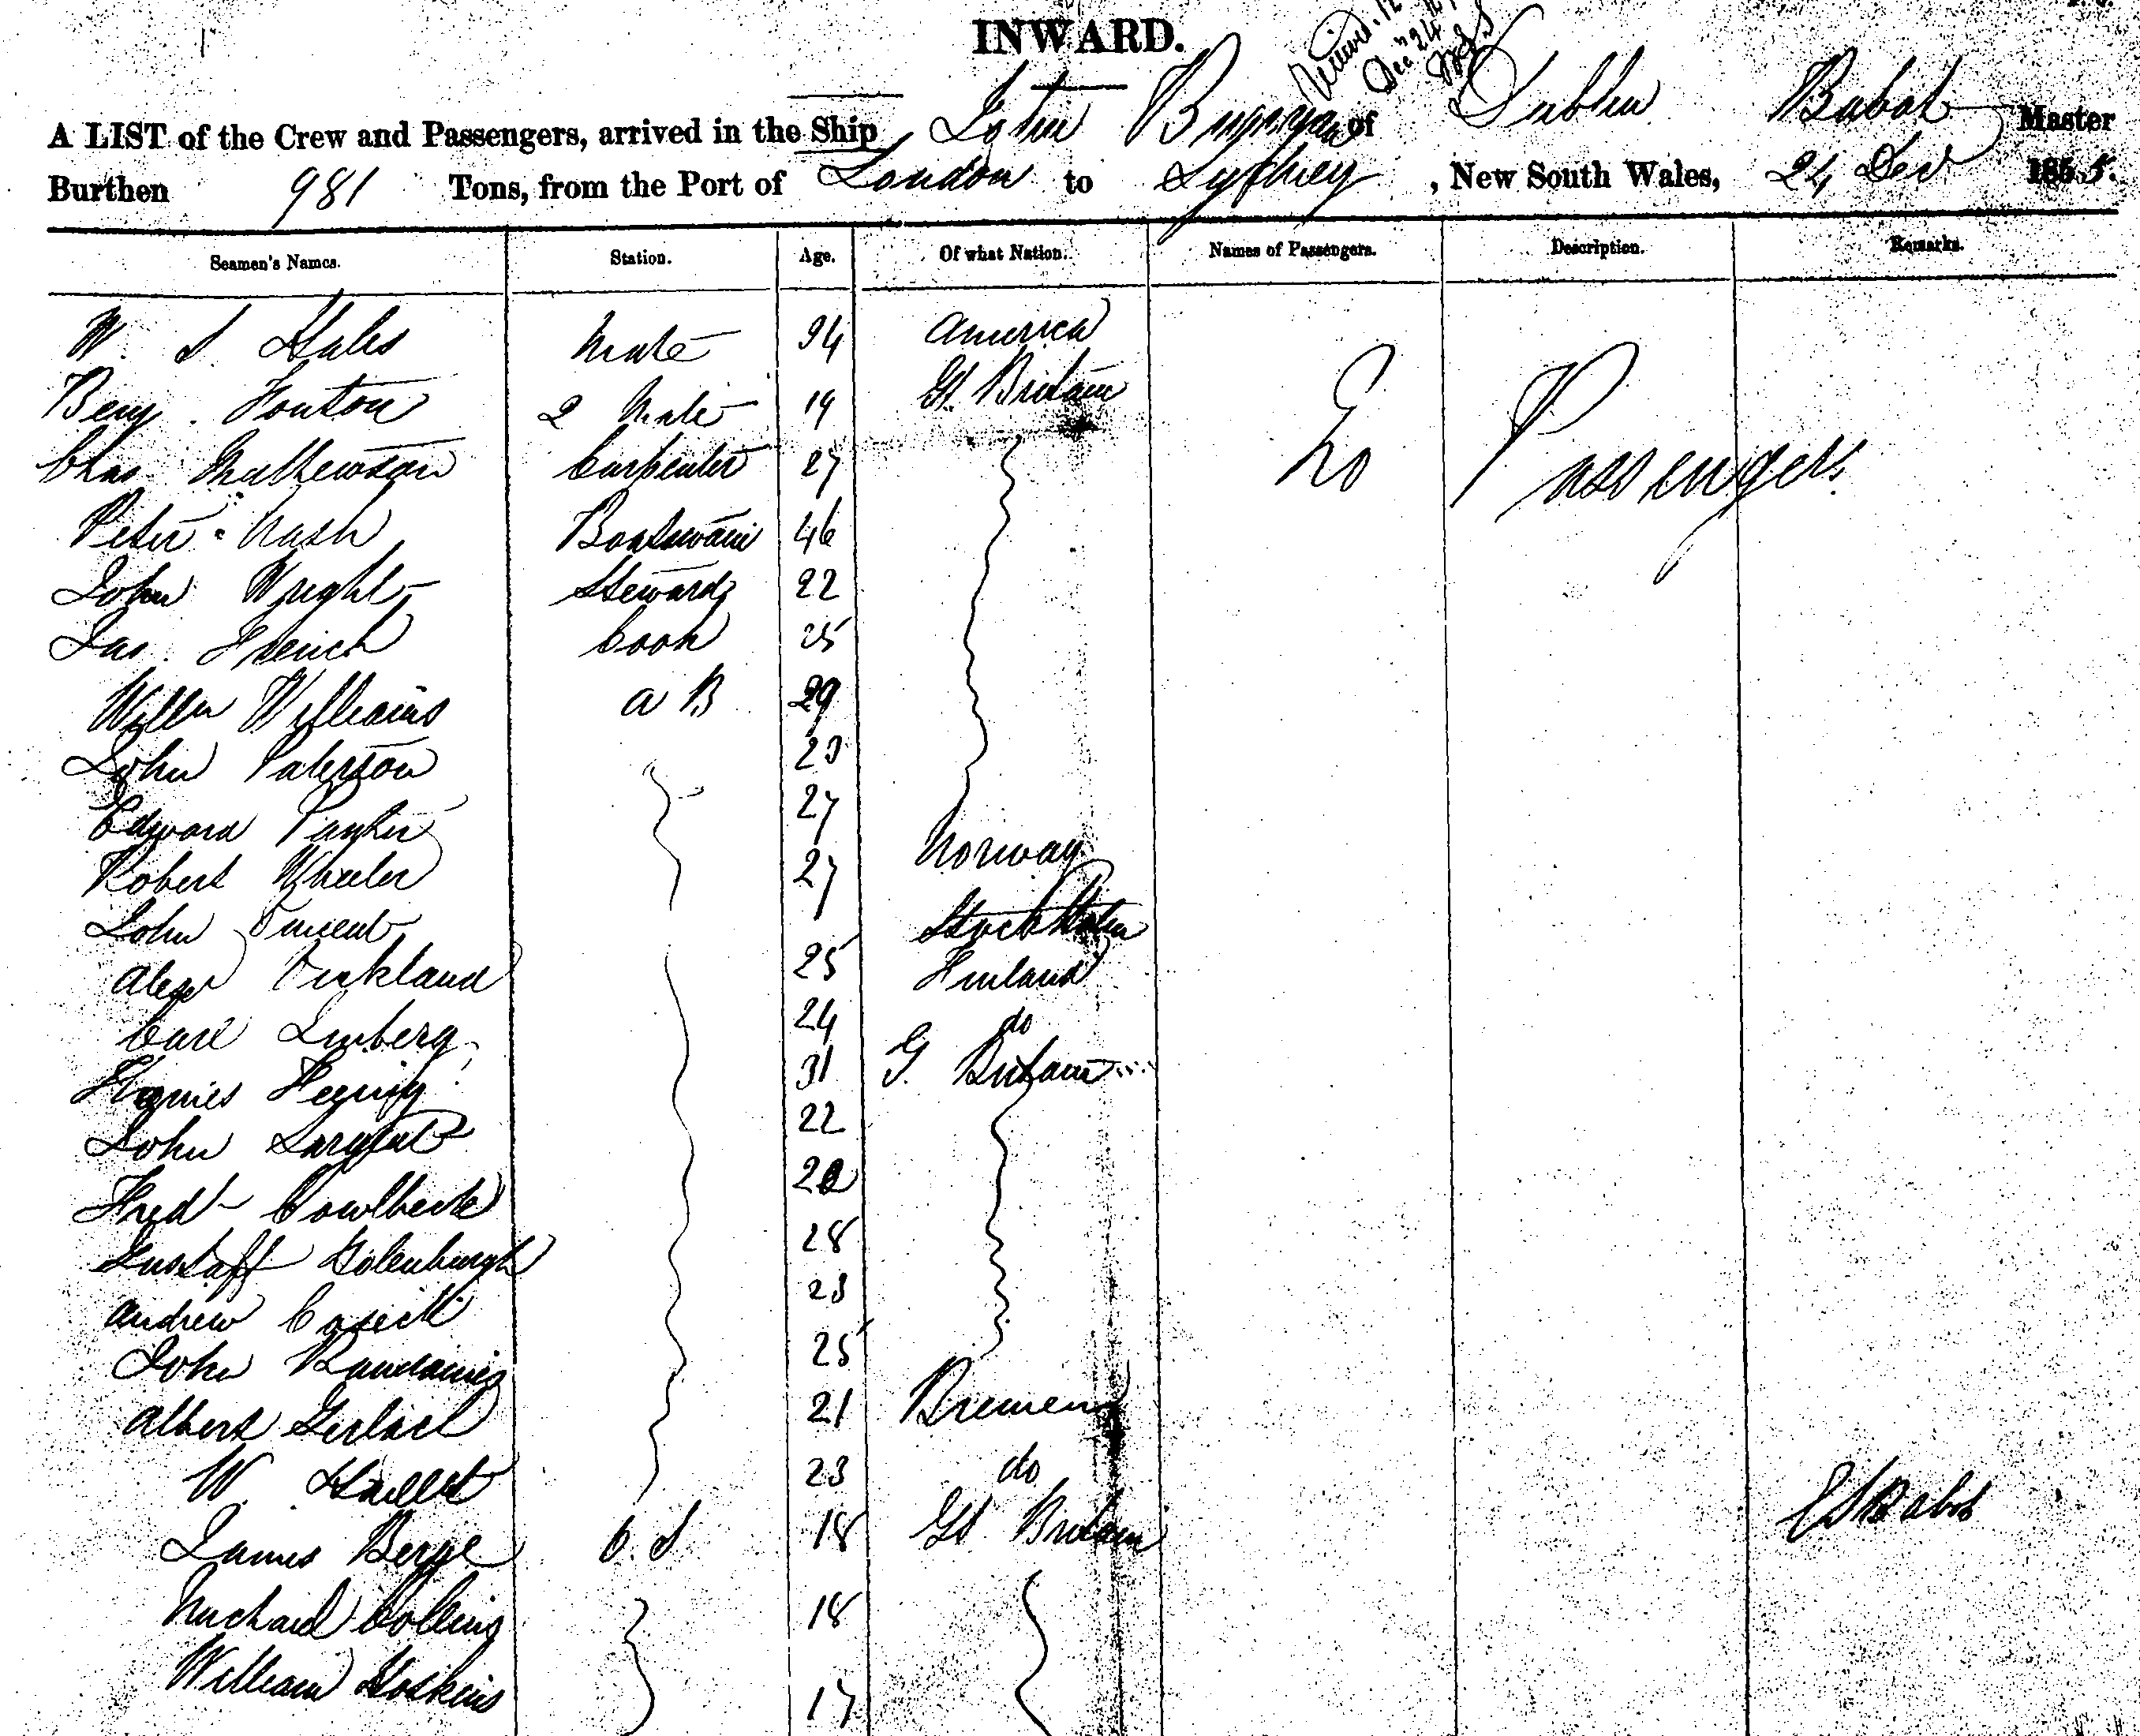 INWARD.
Dec 24
A LIST of the Crew and Passengers, arrived in the Ship John Bunyan of Dublin Babot Master
Burthen 981 Tons, from the Port of London to Sydney, New South Wales, 24 Dec 1855.
Seamen's Names. Station. Age. Of what Nation. Names of Passengers. Description. Remarks.
W. S Hales Mate 34 America
Benj. Fonton 2 Mate 19 Gt. Britain
Chas Mathewson Carpenter 27
No Passengers
Peter Nash Boatswain 46
John Wright Steward 22
Jas. French Cook 25
Willm Williams A B 29
John Paterson 23
Edward 27
Robert Wheeler 27 Norway
John Vincent Stockholm
Alexr Kirkland 25 Finland
Carl Linberg 24 do
31 G. Britain
John Sargent 22
Fredk 22
Gustaff 28
Andrew 23
John 25
Albert Gerlach 21 Bremen
W. 23 do
James Berge O. S 18 Gt Britain
Collins 18
William Hoskins 17